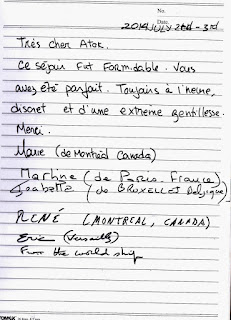 No.
Date
2014 JULY 2nd - 3rd
Très cher Atok.
Ce séjour fut formidable. Vous
avez été parfait. Toujours à l'heure,
discret et d'une extrême gentillesse.
Merci.
Marie (de Montréal Canada)
Martine (de Paris. France)
Isabelle (de BRUXELLES Belgique)
RENÉ (MONTREAL, CANADA)
Eric (Versailles)
From the world ship